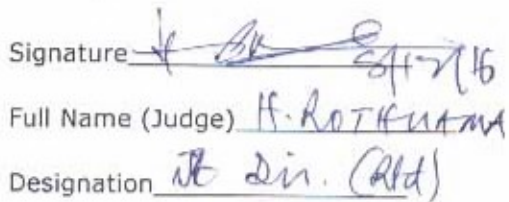 Signature
Full Name (Judge) H. ROTHUAMA
Designation Jt Dir. (Rtd)